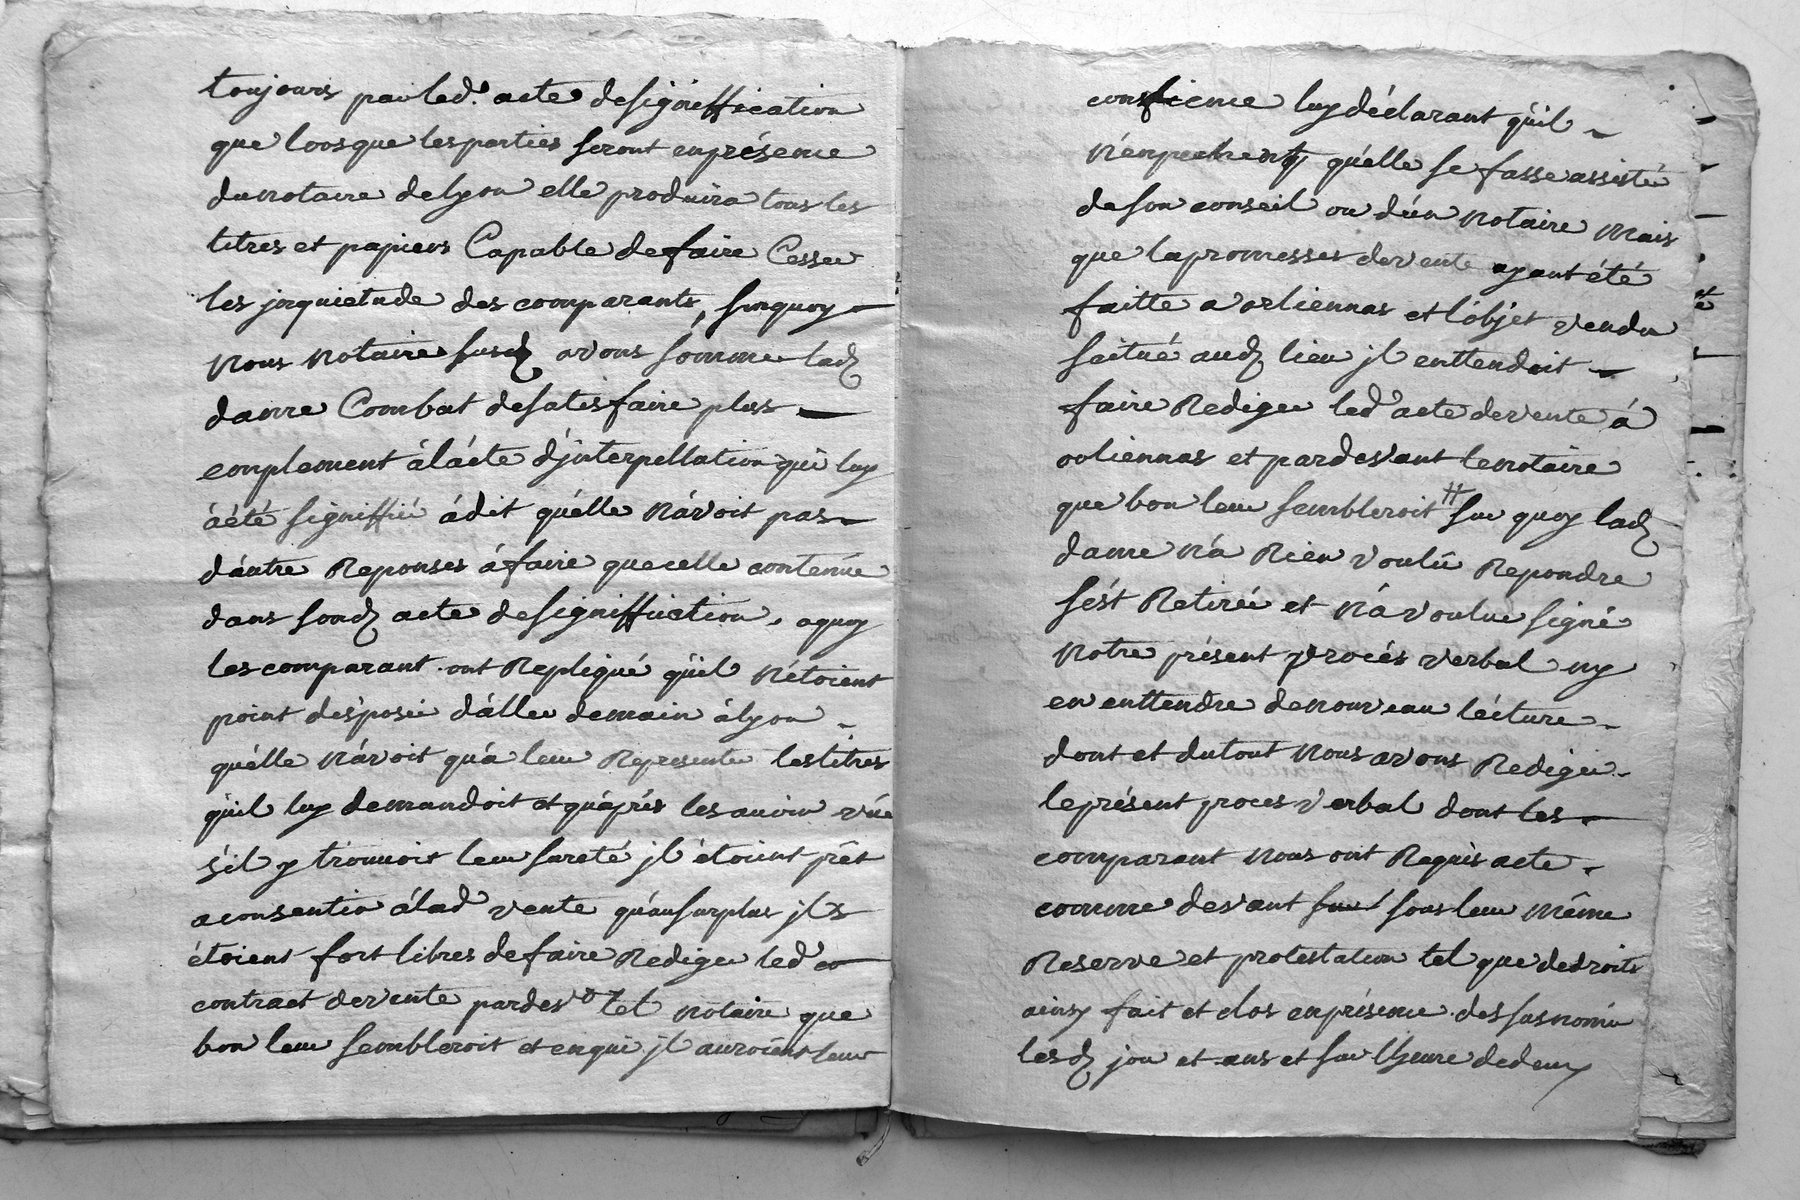 toujours par led.t acte designiffication
que lorsque lesparties seront enprésence
dunotaire delyon elle produira tous les
titres et papiers Capable defaire Cesser
les jnquietude des comparants, surquoy
Nous Notaire susd avons sommé lad
dame Combat desatisfaire plus
emplement àlácte d'jnterpellation qui luy
áété signiffié ádit qu'elle Návoit pas
dáutre Reponses áfaire quecelle contenüe
dans sond acte designiffication, aquoy
les comparant ont Repliqué qüil Nétoient
point desposé dáller demain ályon
quélle Návoit quá leur Representer lestitres
qüil luy demandoit et quáprés les avoir vüe
s'il y trouvoit leur sureté jl étoient prêt
aconsentir álad vente quáusurplus jls
étoient fort libres defaire Rediger led
contract devente pardevt tel notaire que
bon leur sembleroit et enqui jl auroient leur
confience luy déclarant qüil
Nénpechent quélle se fasse assisté
deson conseil ou d'ún Notaire Mais
que lapromesses devente ayant été
faitte a orliennas et lóbjet vendu
scitué aud lieu jl enttendoit
faire Rediger led acte devente á
orliennas et pardevant lenotaire
que bon leur sembleroit # sur quoy lad
dame Ná Rien voulü Repondre
sést Retirée et Návoulue signé
Notre présent procés verbal ny
en enttendre denouveau lécture
dont et dutout Nous avons Rediger
leprésent proces verbal dont les
comparant Nous ont Requis acte
comme devant sous leur Même
Reserve et protestation tel que dedroits
ainsy fait et clos enprésence des susnomé
lesd jour et ans et sur lheure dedeux